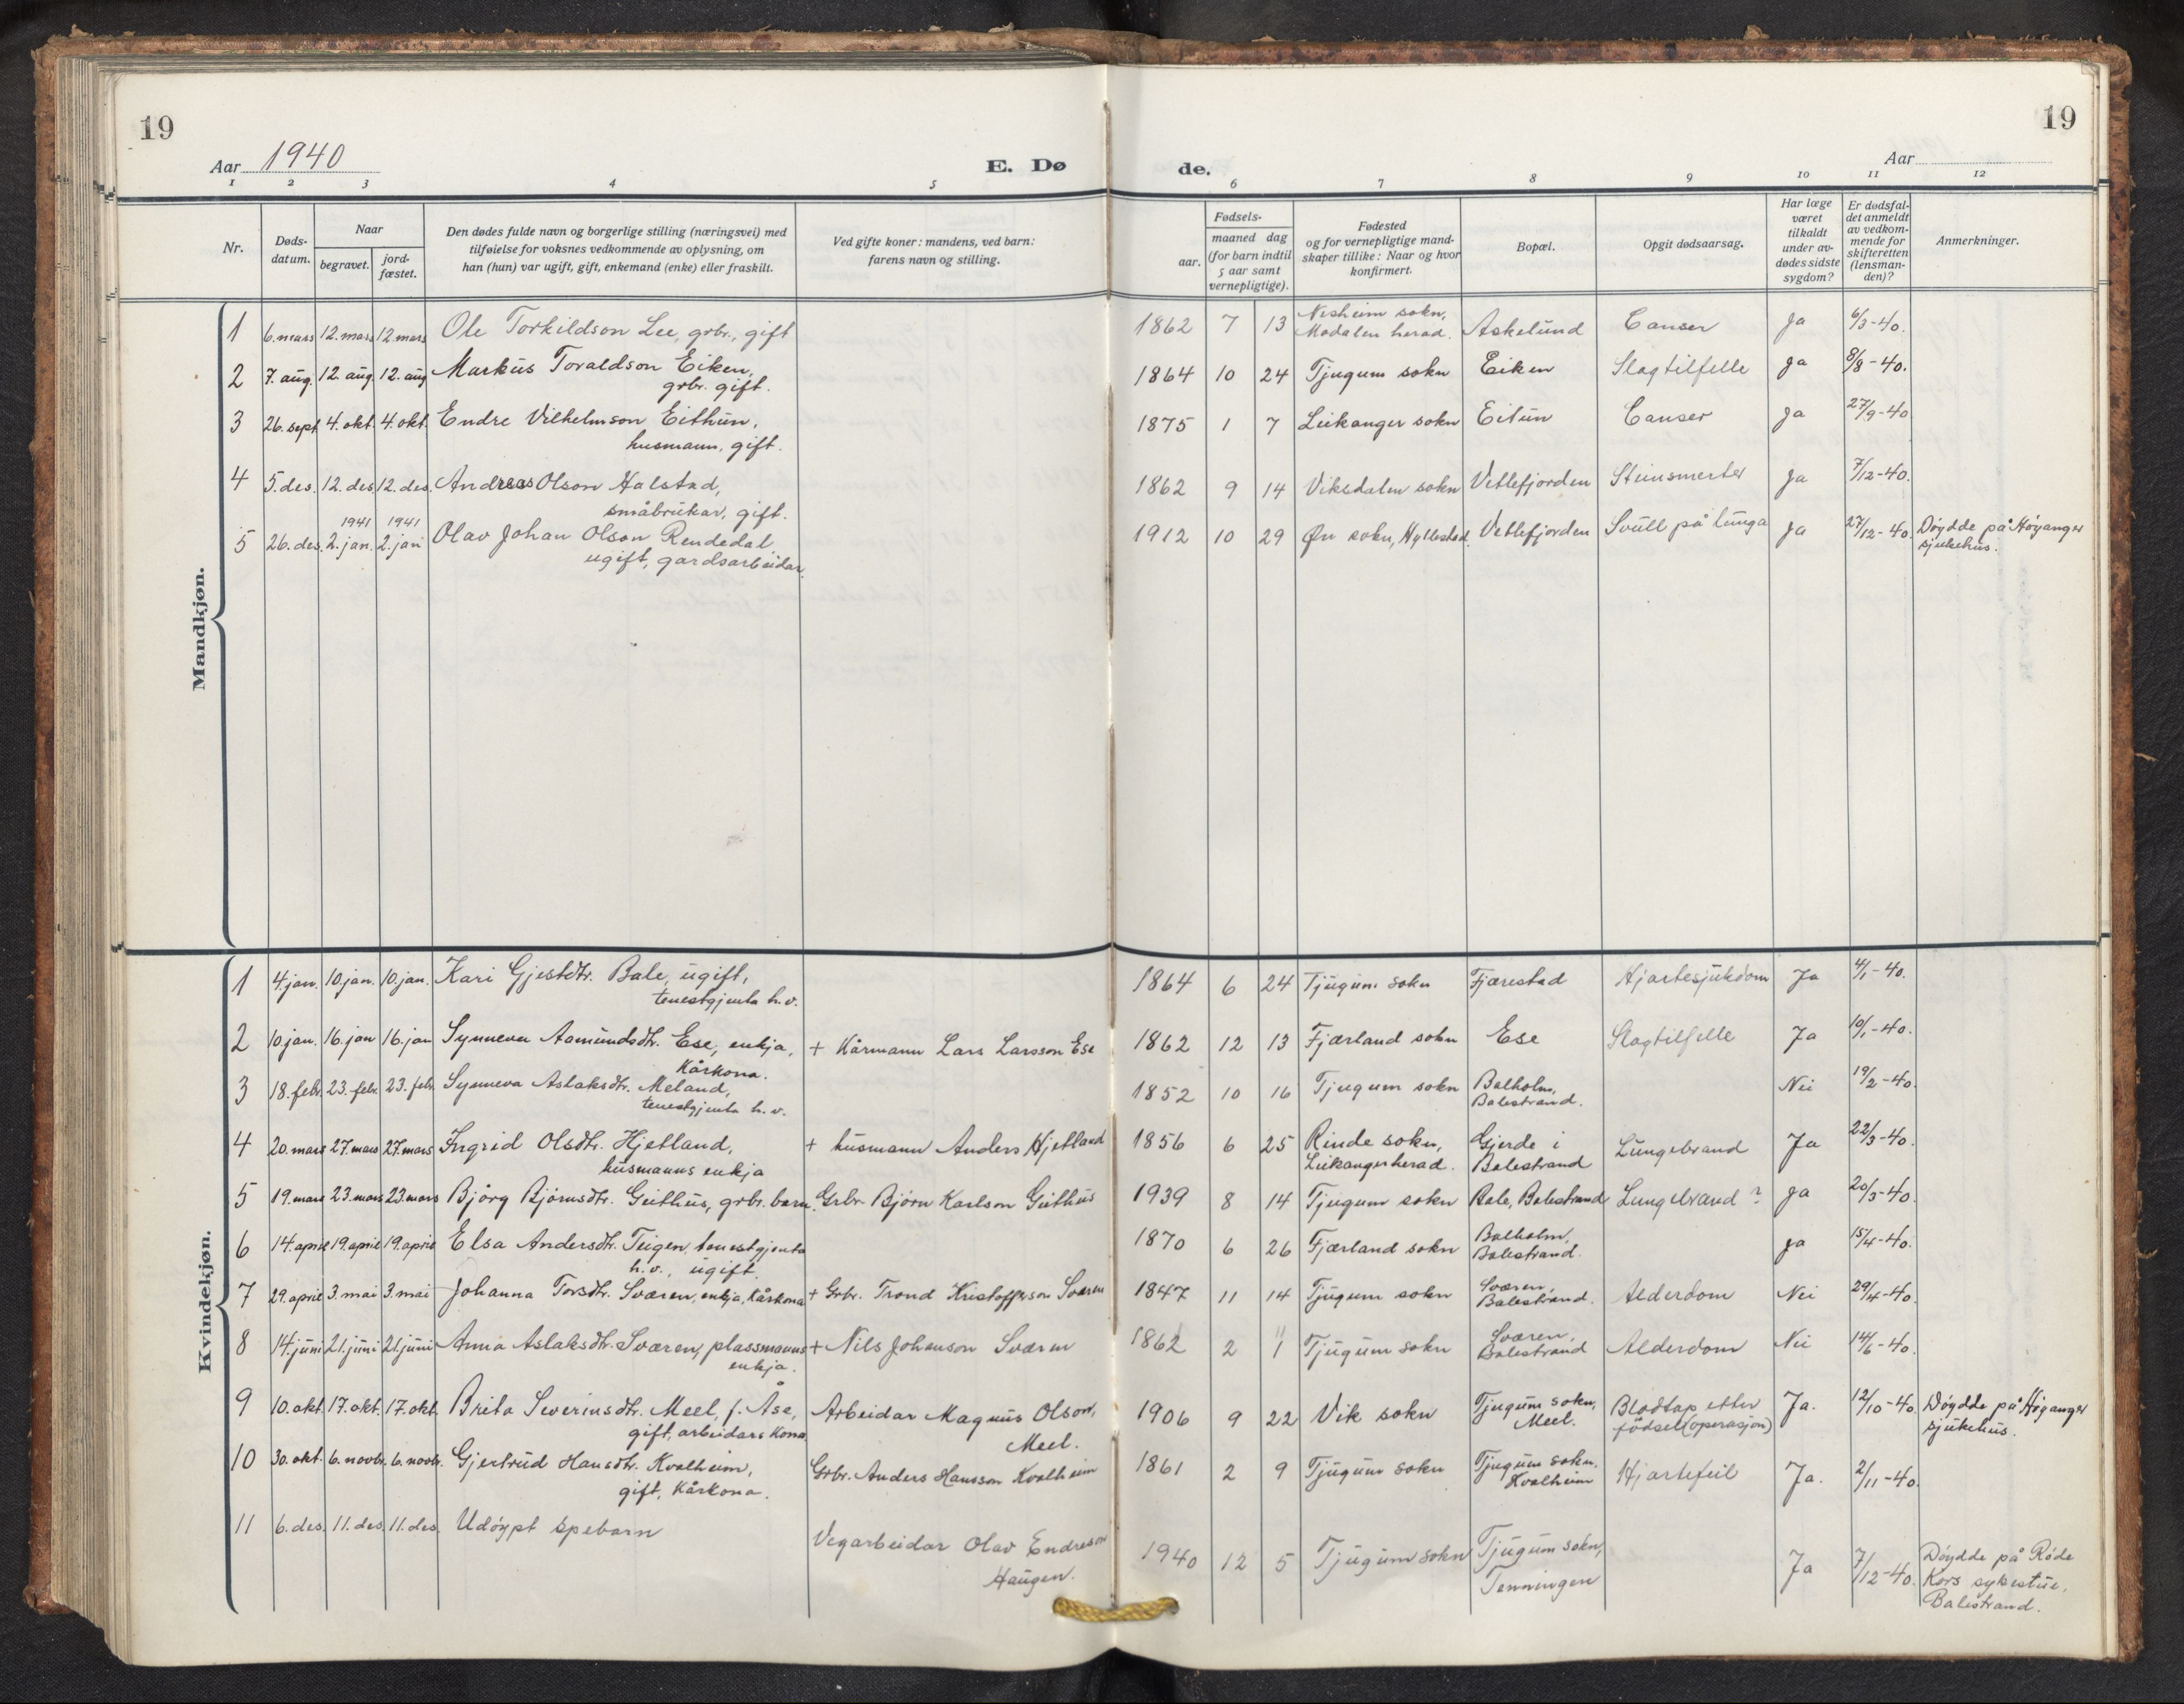 19
19
Aar 1940
E. Døde.
Aar
1 2 3 4 5 6 7 8 9 10 11 12
Nr.
Døds-
datum.
Naar
begravet.
jord-
fæstet.
Den dødes fulde navn og borgerlige stilling (næringsvei) med
tilføielse for voksnes vedkommende av oplysning, om
han (hun) var ugift, gift, enkemand (enke) eller fraskilt.
Ved gifte koner: mandens, ved barn:
farens navn og stilling.
Fødsels-
aar.
maaned dag
(for barn indtil
5 aar samt
vernepligtige).
Fødested
og for vernepligtige mand-
skaper tillike: Naar og hvor
konfirmert.
Bopæl.
Opgit dødsaarsag.
Har læge
været
tilkaldt
under av-
dødes sidste
sygdom?
Er dødsfal-
det anmeldt
av vedkom-
mende for
skifteretten
(lensman-
den)?
Anmerkninger.
Mandkjøn.
1 6. mars 12. mars 12. mars Ole Torkildson Lee, grbr., gift 1862 7 13 Nesheim sokn, Modalen herad. Askelund Canser Ja 6/3-40.
2 7. aug. 12. aug. 12. aug Markus Toraldson Eiken, grbr. gift. 1864 10 24 Tjugum sokn Eiken Slagtilfelle Ja 8/8-40.
3 26. sept 4. okt. 4. okt. Endre Vilhelmson Eithun, husmann, gift. 1875 1 7 Leikanger sokn Eitun Canser Ja 27/9-40
4 5. des. 12. des 12. des. Andreas Olson Halstad, småbrukar, gift. 1862 9 14 Viksdalen sokn Vetlefjorden Steinsmerter Ja 7/12-40.
1941 1941
5 26. des. 2. jan. 2. jan Olav Johan Olson Rendedal ugift, gardsarbeidar. 1912 10 29 Øn sokn, Hyllestad. Vetlefjorden Svull på lunga Ja 27/12-40. Døydde på Høyanger sjukehus.
Kvindekjøn.
1 4. jan. 10. jan. 10. jan. Kari Gjestdtr. Bale, ugift, tenestgjenta h.v. 1864 6 24 Tjugum sokn Fjærestad Hjartesjukdom Ja 4/1-40.
2 10. jan. 16. jan 16. jan Synneva Aamundsdtr. Ese, enkja, Kårkona. + Kårmann Lars Larsson Ese 1862 12 13 Fjærland sokn Ese Slagtilfelle Ja 10/1-40.
3 18. febr. 23. febr. 23. febr. Synneva Aslaksdtr. Meland, tenestgjenta h.v. 1852 10 16 Tjugum sokn Balholm, Balestrand. Nei 19/2-40.
4 20. mars 27. mars 27. mars Ingrid Olsdtr. Hjetland, husmanns enkja + husmann Anders Hjetland 1856 6 25 Rinde sokn, Leikanger herad. Gjerde i Balestrand Lungebrand Ja 22/3-40.
5 19. mars 23. mars 23. mars Bjørg Bjørnsdtr. Geithus, grbr. barn. Grbr. Bjørn Karlson Geithus 1939 8 14 Tjugum sokn Bale, Balestrand Lungebrand? Ja 20/3-40.
6 14. april 19. april 19. april Elsa Andersdtr. Teigen, tenestgjenta h.v., ugift. 1870 6 26 Fjærland sokn Balholm, Balestrand. Ja 15/4-40.
7 29. april 3. mai 3. mai Johanna Torsdtr. Sværen, enkja, Kårkona + Grbr. Trond Kristofferson Sværen 1847 11 14 Tjugum sokn Sværen, Balestrand. Alderdom Nei 29/4-40.
8 14. juni 21. juni 21. juni Anna Aslaksdtr. Sværen, plassmanns enkja. + Nils Johanson Sværen 1862 2 11 1 Tjugum sokn Sværen, Balestrand Alderdom Nei 14/6-40.
9 10. okt. 17. okt. 17. okt. Brita Severinsdtr. Meel, f. Åse, gift, arbeidars Kona Arbeidar Magnus Olson, Meel. 1906 9 22 Vik sokn Tjugum sokn, Meel. Blodtap etter fødsel (operasjon) Ja. 12/10-40 Døydde på Høyanger sjukehus.
10 30. okt. 6. novbr. 6. novbr. Gjertrud Hansdtr. Kvalheim, gift, Kårkona. Grbr. Anders Hansson Kvalheim 1861 2 9 Tjugum sokn Tjugum sokn. Kvalheim Hjartefeil Ja. 2/11-40.
11 6. des. 11. des. 11. des. Udøypt spebarn Vegarbeidar Olav Endreson Haugen. 1940 12 5 Tjugum sokn Tjugum sokn, Tenningen Ja 7/12-40. Døydde på Røde Kors sykestue, Balestrand.